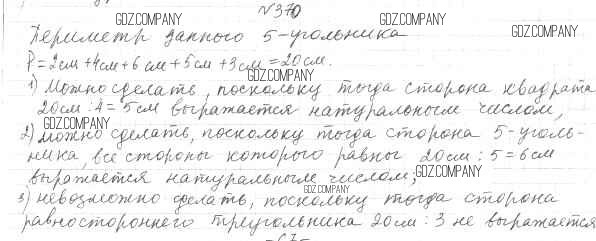 №370
GDZ.COMPANY GDZ.COMPANY
Периметр данного 5-угольника
P=2см+4см+6см+5см+3см=20см.
GDZ.COMPANY
1) Можно сделать, поскольку тогда сторона квадрата
20см:4=5см выражается натуральным числом,
GDZ.COMPANY
2) можно сделать, поскольку тогда сторона 5-уголь-
ника, все стороны которого равны 20см:5=6см
выражается натуральным числом;
GDZ.COMPANY
GDZ.COMPANY
3) невозможно сделать, поскольку тогда сторона
равностороннего треугольника 20см:3 не выражается
GDZ.COMPANY
-67-